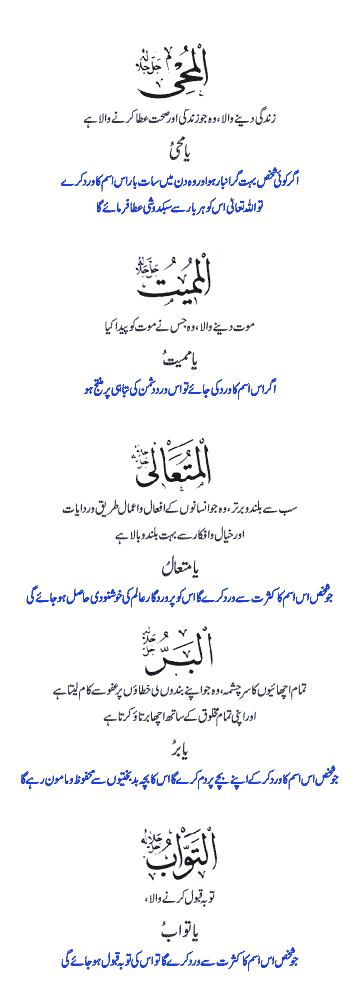 الْمُحْيِ جل جلالہ
زندگی دینے والا، وہ جو زندگی اور صحت عطا کرنے والا ہے
یا محیُ
اگر کوئی شخص بہت گرانبار ہو اور وہ دن میں سات بار اس اسم کا ورد کرے
تو اللہ تعالیٰ اس کو ہر بار سے سبکدوشی عطا فرمائے گا
الْمُمِيتُ جل جلالہ
موت دینے والا، وہ جس نے موت کو پیدا کیا
یا ممیتُ
اگر اس اسم کا ورد کی جائے تو اس ورد دشمن کی تباہی پر منتج ہو
الْمُتَعَالِى جل جلالہ
سب سے بلند و برتر، وہ جو انسانوں کے افعال و اعمال طریق و ردایات
اور خیال و افکار سے بہت بلند و بالا ہے
یا متعالُ
جو شخص اس اسم کا کثرت سے ورد کرے گا اس کو پروردگار عالم کی خوشنودی حاصل ہو جائے گی
الْبَرُّ جل جلالہ
تمام اچھائیوں کا سرچشمہ، وہ جو اپنے بندوں لی خطاؤں پر عفو سے کام لیتا ہے
اور اپنی تمام مخلوق کے ساتھ اچھا برتاؤ کرتا ہے
یا برُ
جو شخص اس اسم کا ورد کر کے اپنے بچے پر دم کرے گا اس کا بچہ بدبختیوں سے محفوظ و مامون رہے گا
التَّوَّابُ جل جلالہ
توبہ قبول کرنے والا،
یا توابُ
جو شخص اس اسم کا کثرت سے ورد کرے گا تو اس کی توبہ قبول ہو جائے گی